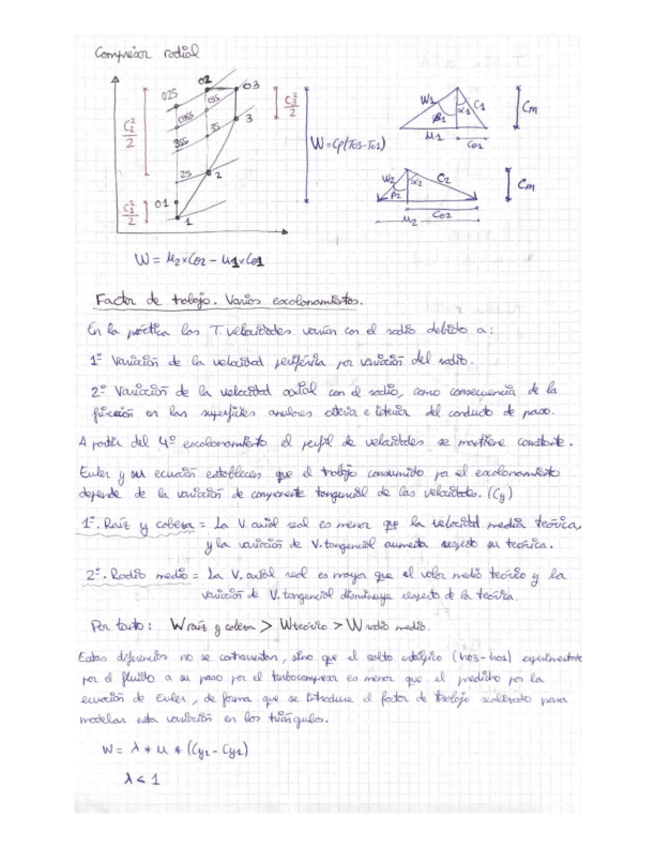 Compresor radial
02
03
02S
03S
03SS
3
3S
3SS
2S
2
01
1
C₂²/2
C₁²/2
C₃²/2
W = Cp(T03-T01)
W1
β1
α1
C1
Cm
μ1
Cθ1
W2
β2
α2
C2
Cm
μ2
Cθ2
W = μ2×Cθ2 - μ1×Cθ1
Factor de trabajo. Varios escalonamientos.
En la práctica los T. velocidades varían con el radio debido a:
1º Variación de la velocidad periférica por variación del radio.
2º Variación de la velocidad axial con el radio, como consecuencia de la
fricción en las superficies anulares exterior e interior del conducto de paso.
A partir del 4º escalonamiento el perfil de velocidades se mantiene constante.
Euler y su ecuación establecen que el trabajo consumido por el escalonamiento
depende de la variación de componente tangencial de las velocidades. (Cy)
1º. Raíz y cabeza = La V. axial real es menor que la velocidad media teórica
y la variación de V. tangencial aumenta respecto su teórica.
2º. Radio medio = La V. axial real es mayor que el valor medio teórico y la
variación de V. tangencial disminuye respecto de la teórica.
Por tanto: W raíz y cabeza > W teórico > W radio medio.
Estas diferencias no se contrarrestan, sino que el salto entálpico (h03-h01) experimentado
por el fluido a su paso por el turbocompresor es menor que el predicho por la
ecuación de Euler, de forma que se introduce el factor de trabajo realizado para
modelar esta variación en los triángulos.
W = λ * u * (Cy2 - Cy1)
λ < 1